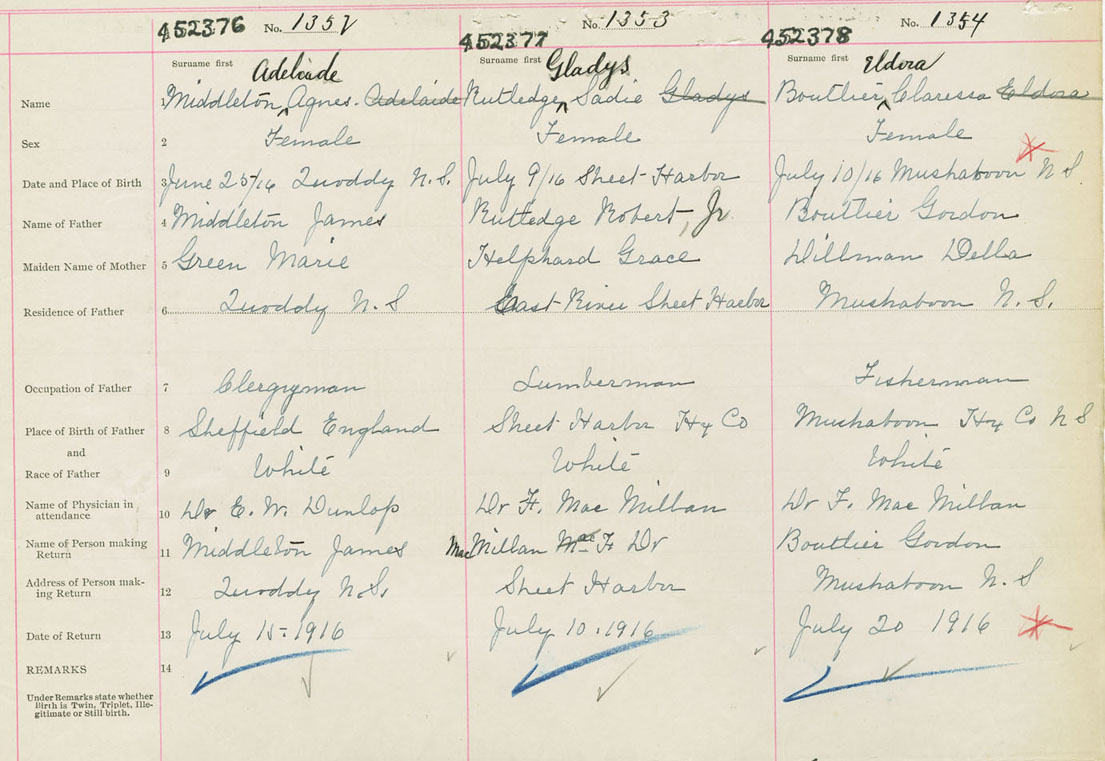 452376 No. 1352 452377 No. 1353 452378 No. 1354
Surname first Surname first Surname first
Adelaide Gladys Eldora
Name 1 Middleton, Agnes. Adelaide Rutledge, Sadie Gladys Boutlier, Claressa Eldora
Sex 2 Female Female Female
Date and Place of Birth 3 June 25/16 Quoddy N.S. July 9/16 Sheet Harbor July 10/16 Mushaboon N S.
Name of Father 4 Middleton James Rutledge Robert, Jr. Boutlier Gordon
Maiden Name of Mother 5 Green Marie Helphard Grace Dillman Della
Residence of Father 6 Quoddy N. S East River Sheet Harbor Mushaboon N. S.
Occupation of Father 7 Clergyman Lumberman Fisherman
Place of Birth of Father 8 Sheffield England Sheet Harbor Hx Co Mushaboon Hx Co N S
and
Race of Father 9 White White White
Name of Physician in
attendance 10 Dr E. W. Dunlop Dr F. Mac Millan Dr F. Mac Millan
Name of Person making
Return 11 Middleton James Mac Millan Mac F Dr Boutlier Gordon
Address of Person mak-
ing Return 12 Quoddy N.S. Sheet Harbor Mushaboon N. S
Date of Return 13 July 15-1916 July 10.1916 July 20 1916
REMARKS 14
Under Remarks state whether
Birth is Twin, Triplet, Ille-
gitimate or Still birth.